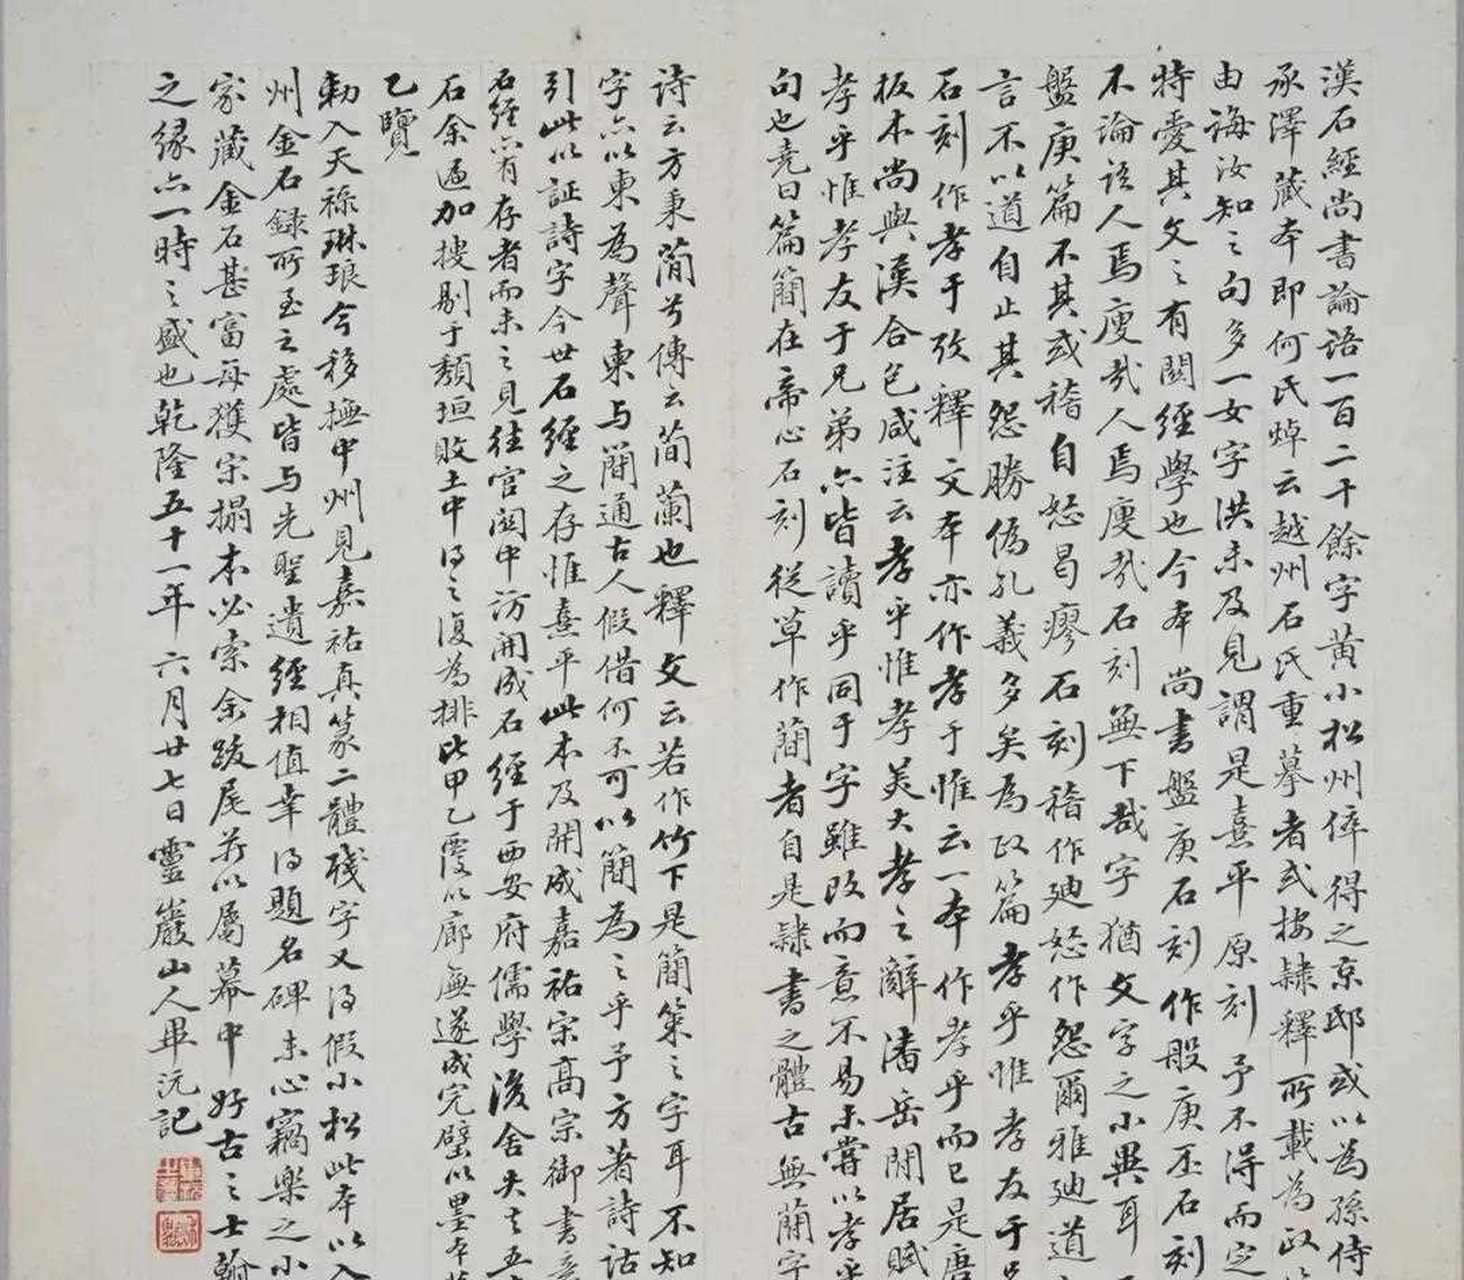 漢石經尚書論語一百二十餘字黃小松州倅得之京邸或以為孫侍
承澤藏本即何氏焯云越州石氏重摹者或按隸釋所載為政
由誨汝知之句多一女字洪未及見謂是熹平原刻予不得而定
特愛其文之有關經學也今本尚書盤庚石刻作般庚丕石刻
不論語人焉廋哉人焉廋哉石刻無下哉字猶文字之小異耳
盤庚篇不其或稽自怒曷瘳石刻稽作迪怒作怨爾雅迪道
言不以道自止其怨勝偽孔義多矣為政篇孝乎惟孝友于兄
石刻作孝于攷釋文本亦作孝于惟云一本作孝乎而已是唐
板本尚與漢合包咸注云孝乎惟孝美大孝之辭潘岳閒居賦
孝乎惟孝友于兄弟亦皆讀乎同于字雖改而意不易未嘗以孝乎
句也堯曰篇簡在帝心石刻從草作蕳者自是隸書之體古無蕳字
詩云方秉蕳兮傳云蕳蘭也釋文云若作竹下是簡策之字耳不知
字亦以柬為聲柬与蕳通古人假借何不可以簡為之乎予方著詩詁
引此以証詩字今世石經之存惟熹平此本及開成嘉祐宋高宗御書
石經亦有存者而未之見往官關中訪開成石經于西安府儒學後舍失去五
石余逼加搜剔于頹垣敗土中得之復為排比甲乙覆以廊廡遂成完璧以墨本
乙覽
勅入天祿琳琅今移撫中州見嘉祐真篆二體殘字又得假小松此本以入
州金石錄所至之處皆与先聖遺經相值幸得題名碑末心竊樂之小
家藏金石甚富每獲宋搨本必索余跋尾并以屬幕中好古之士
之緣亦一時之盛也乾隆五十一年六月廿七日靈巖山人畢沅記